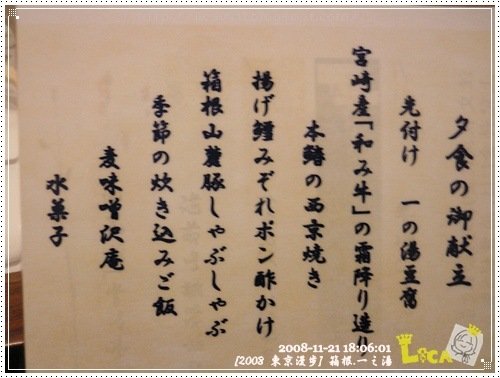 夕食の御献立
先付け 一の湯豆腐
宮崎産「和み牛」の霜降り造り
本鰆の西京焼き
揚げ鱧みぞれポン酢かけ
箱根山麓豚しゃぶしゃぶ
季節の炊き込みご飯
麦味噌沢庵
水菓子
2008-11-21 18:06:01
[2008 東京漫步] 箱根.一之湯
LOCA